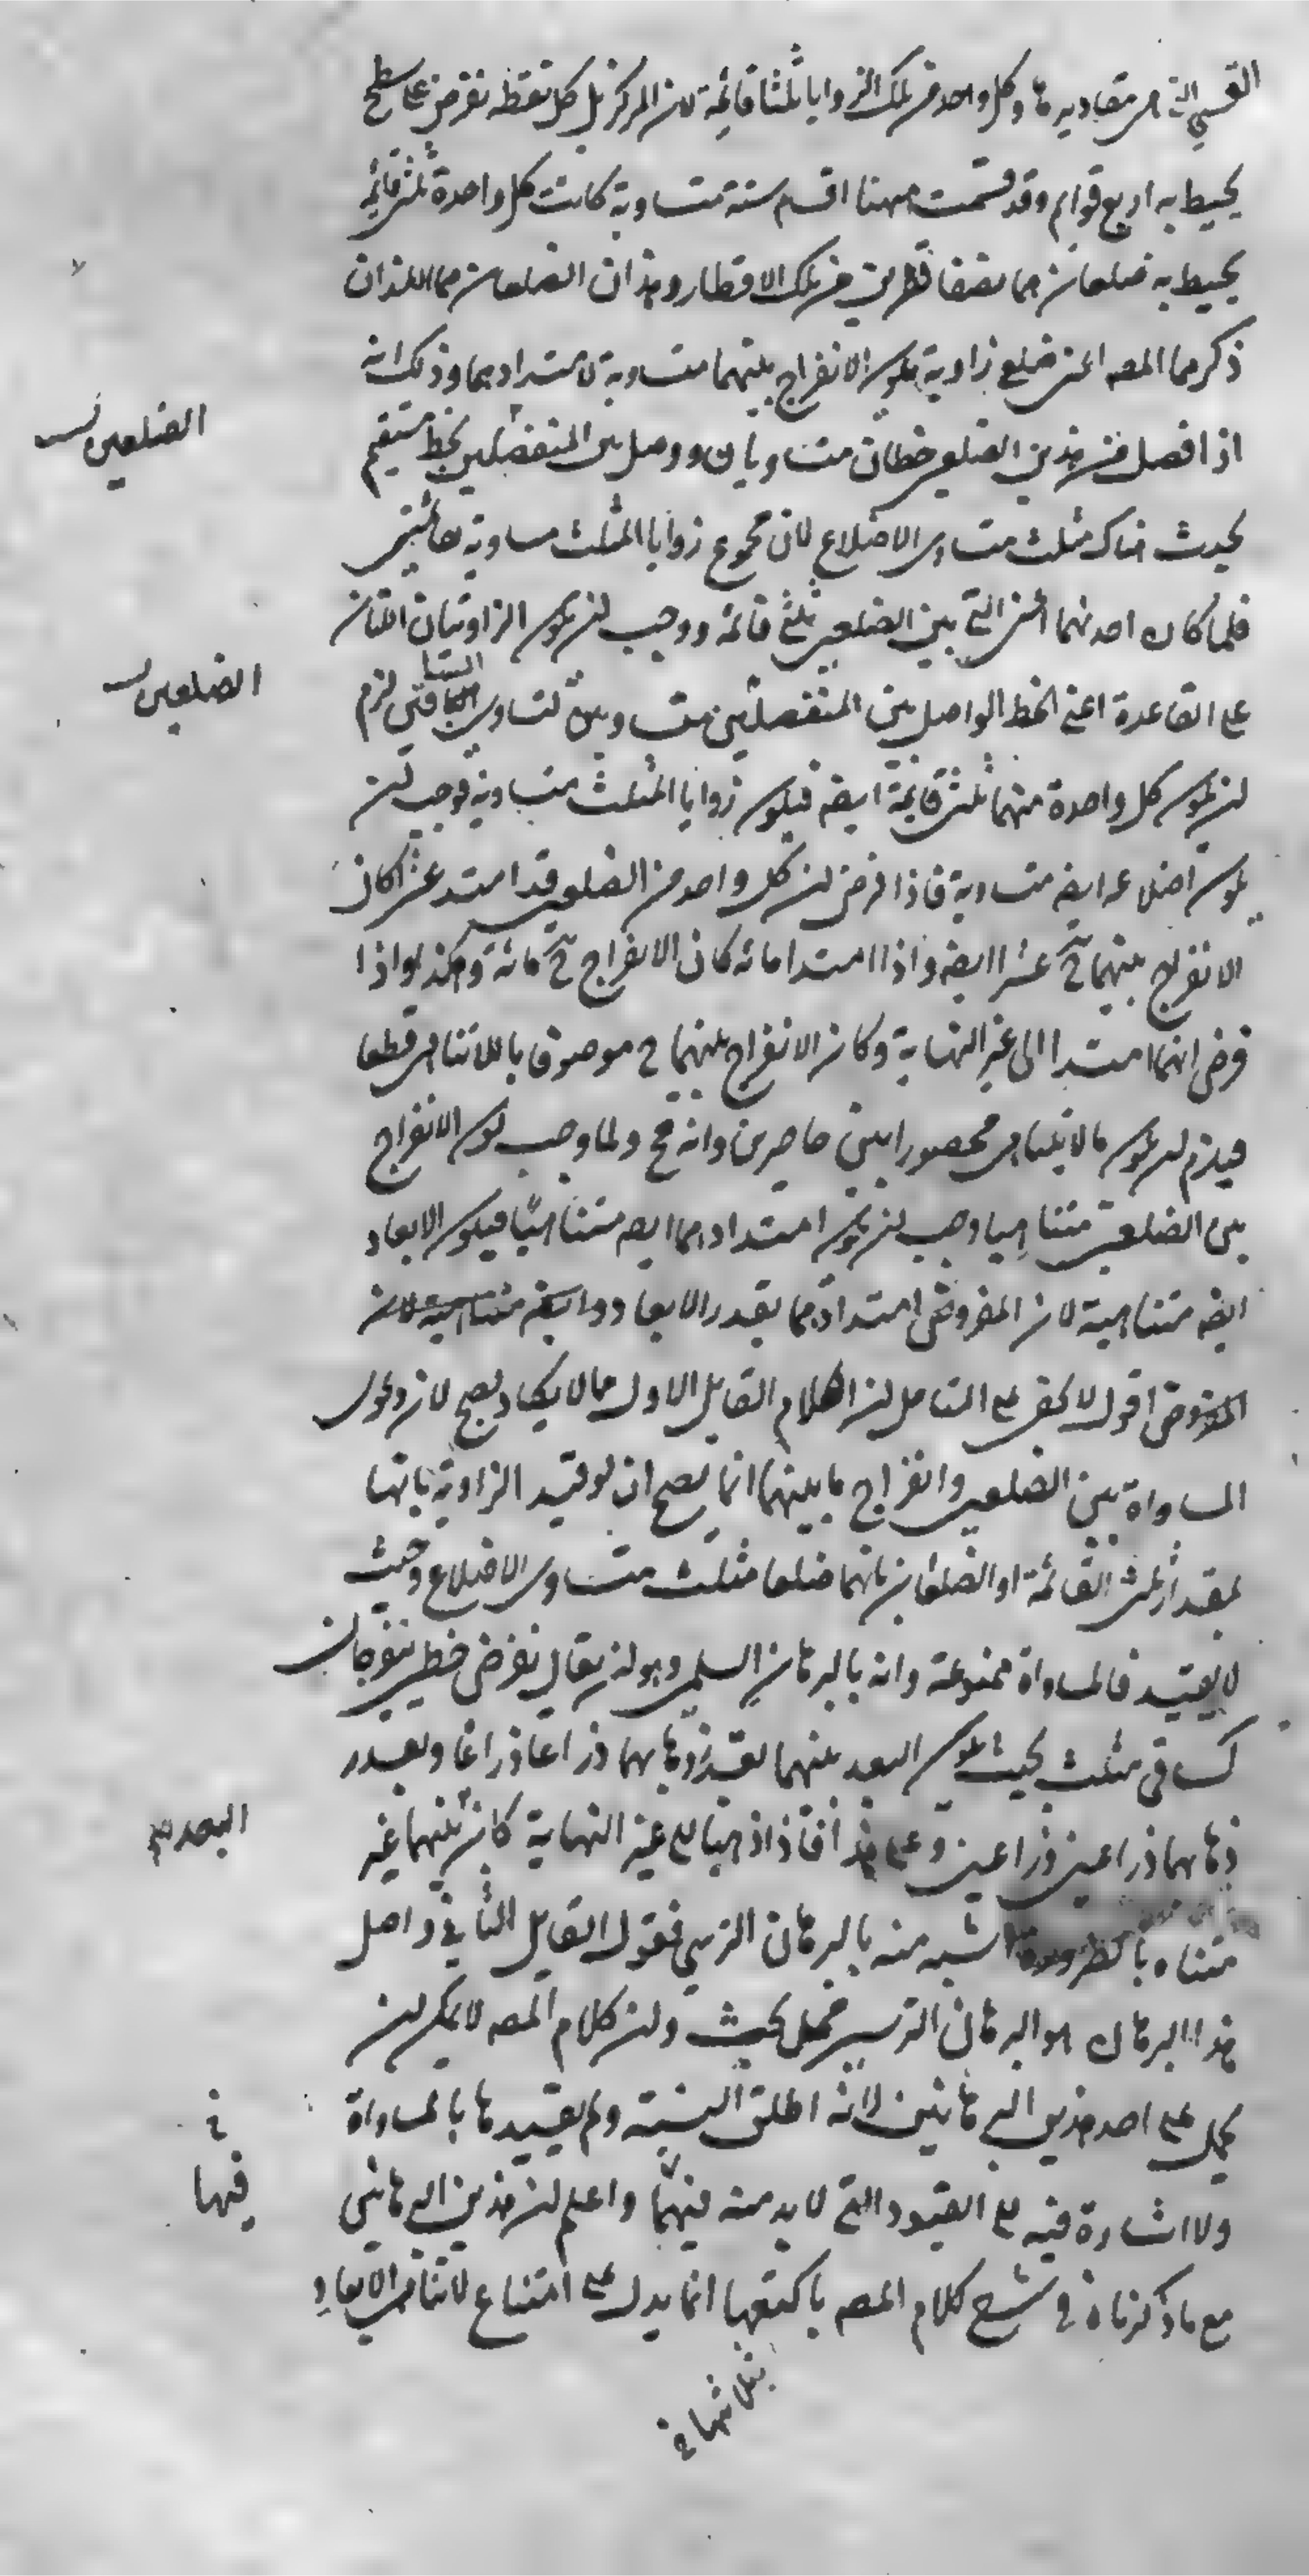 القسي التي هي مقاديرها وكل واحد من تلك الزوايا ثلثا قائمة لان المركز بل كل نقطة تفرض على سطح
يحيط به اربع قوايم وقد قسمت ههنا اقسام ستة متساوية كانت كل واحدة ثلثي قائمة
يحيط به ضلعان هما نصفا قطرين من تلك الاقطار وهذان الضلعان هما اللذان
ذكرهما المصه اعنى ضلع زاوية يكون الانفراج بينهما متساوية لامتدادهما وذلك انه
اذا فصل من هذين الضلعين خطان متساويان ووصل بين المنفصلين بخط مستقيم
الضلعين
يحدث هناك مثلث متساوى الاضلاع لان مجموع زوايا المثلث مساوية لقائمتين
فلما كان احدهما اعنى التي بين الضلعين ثلثى قائمة ووجب لن يكون الزاويتان اللتان
على القاعدة اعنى الخط الواصل بين المنفصلين متساويين لتساوى الساقين لزم
الضلعين
لن يكون كل واحدة منهما ثلثى قايمة ايضه فيكون زوايا المثلث متساوية فوجب لن
يكون اضلاعه ايضه متساوية فاذا فرض لن كل واحد من الضلعين قد امتد عشرا كان
الانفراج بينهما ح عشرا ايضه واذا امتدا مائه كان الانفراج ح مائة وهكذا واذا
فرض انهما امتدا الى غير النهاية وكان الانفراج بينهما ح موصوفا باللاتناهى قطعا
فيلزم لن يكون مالايتناهى محصورا بين حاصرين وانه مح ولما وجب كون الانفراج
بين الضلعين متناهيا وجب لن يكون امتدادهما ايضه متناهيا فيكون الابعاد
ايضه متناهية لان المفروض امتدادهما بقدر الابعاد
المفروض اقول لا يخفى على المتامل لن كلام القايل الاول مما لا يكاد يصح لان دعوى
المساواة بين الضلعين وانفراج ما بينهما انما يصح ان لو قيد الزاوية بانها
بمقدار ثلثى القائمة او الضلعان بانهما ضلعا مثلث متساوى الاضلاع وحيث
لا يقيد فالمساواة ممنوعة وانه بالبرهان السلمى وهو لن يقال نفرض خطين ينفرجان
كساقى مثلث بحيث يكون البعد بينهما بقدر ذهابهما ذراعا ذراعا وبقدر
ذهابهما ذراعين ذراعين وعلى هذا فاذا ذهبا الى غير النهاية كان بينهما غير
البعد
متناه بالضرورة اشبه منه بالبرهان الترسي فقول القايل الثاني واصل
هذا البرهان هو البرهان الترسي محل بحث ولن كلام المصه لا يمكن لن
يحمل على احد هذين البرهانين لانه اطلق النسبة ولم يقيدها بالمساواة
ولا اشارة فيه الى القيود التي لا بد منه فيهما واعلم لن هذين البرهانين
فيها
مع ما ذكرناه في شرح كلام المصه باكتعها انما يدل على امتناع لاتناهى الابعاد